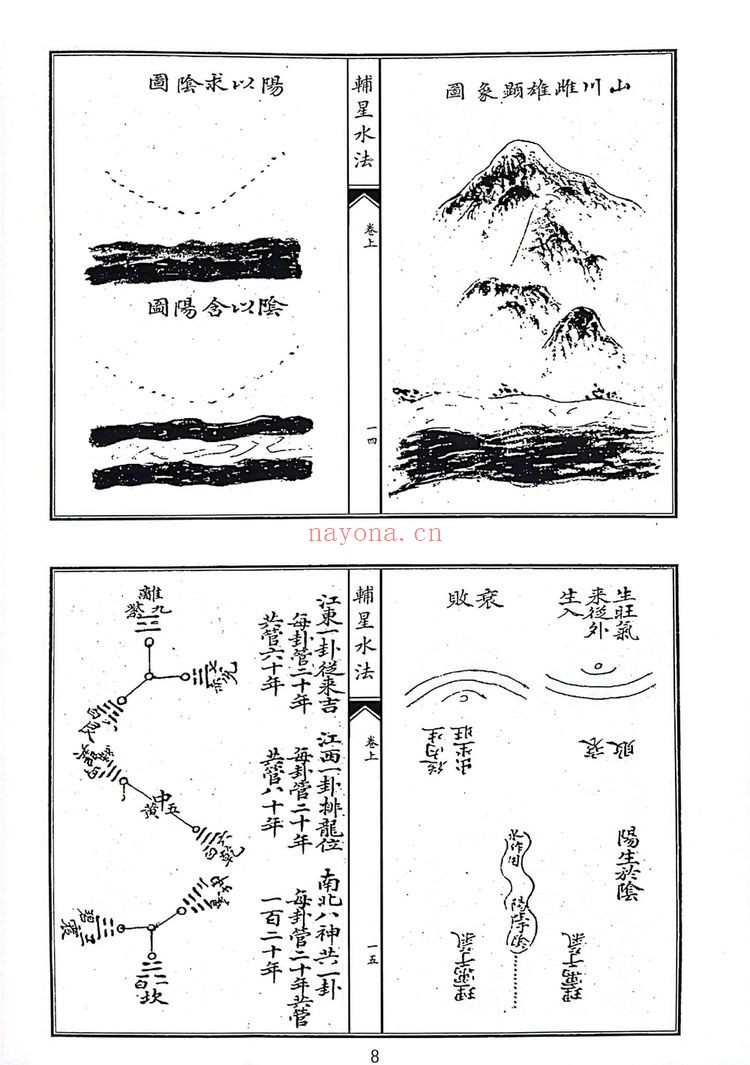 山川雌雄顯象圖
輔星水法
卷上
一四
陽以求陰圖
陰以含陽圖
生旺氣
來從外
生入
衰敗
衰敗
陽生於陰
水作用
陽生于陰
理寓于氣
理寓于氣
輔星水法
卷上
一五
江東一卦從來吉
每卦管二十年
共管六十年
江西一卦排龍位
每卦管二十年
共管八十年
南北八神共一卦
每卦管二十年共管
一百二十年
離九
紫
中五
黃
震
碧
一坎
白
nayona.cn
8